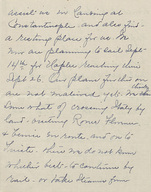 result was in Running at
Constantinople and also find
a resting place for us. We
now are planning to sail Sept
14th for Naples reaching there
Sept 26. Our plans further on
are not matured yet. We
some what of crossing Italy by
land - visiting Rome Florence
& Venice en route and on to
Trieste. then we do not know
which is best - to continue by
rail - or take steamer from